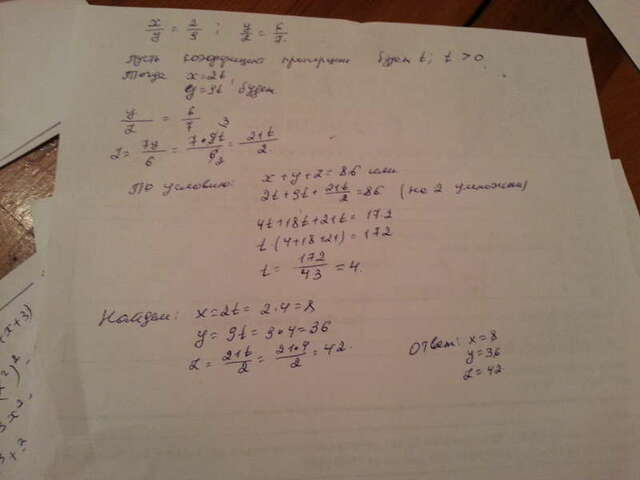 x/y = 2/9 ; y/z = 6/7.
Пусть коэффициент пропорции будет t; t > 0
Тогда x=2t,
y=9t будет
y/z = 6/7
z = 7y/6 = 7·9t/6 = 21t/2.
3
2
По условию: x+y+z=86 или
2t+9t+21t/2=86 (на 2 умножаем)
4t+18t+21t=172
t·(4+18+21)=172
t = 172/43 = 4.
Найдем: x=2t=2·4=8
y=9t=9·4=36
z=21t/2=21·4/2=42.
Ответ: x=8
y=36
z=42.
x+3)